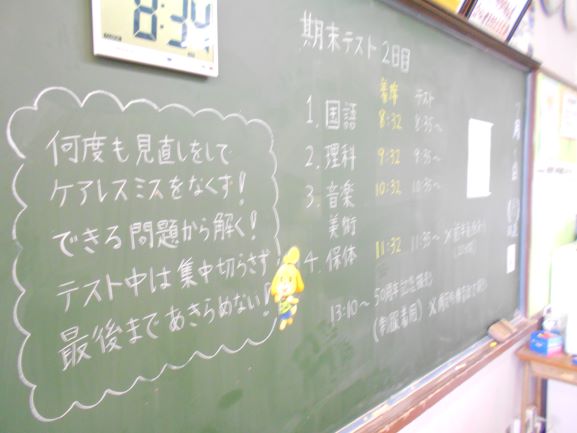 8:34
期末テスト 2日目
着席 テスト
1. 国語 8:32 8:35～
2. 理科 9:32 9:35～
3. 音楽 10:32 10:35～
美術
4. 保体 11:32 11:35～
13:10～ 50周年記念
(制服着用)
何度も見直しをして
ケアレスミスをなくす!
できる問題から解く!
テスト中は集中切らさず
最後まであきらめない!